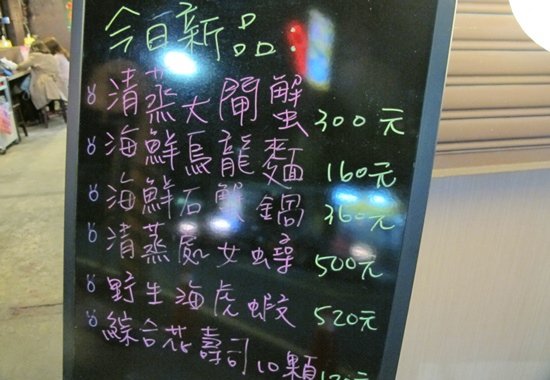 今日新品:
清蒸大閘蟹 300元
海鮮烏龍麵 160元
海鮮石蟹鍋 360元
清蒸處女蟳 500元
野生海虎蝦 520元
綜合花壽司10顆 120元